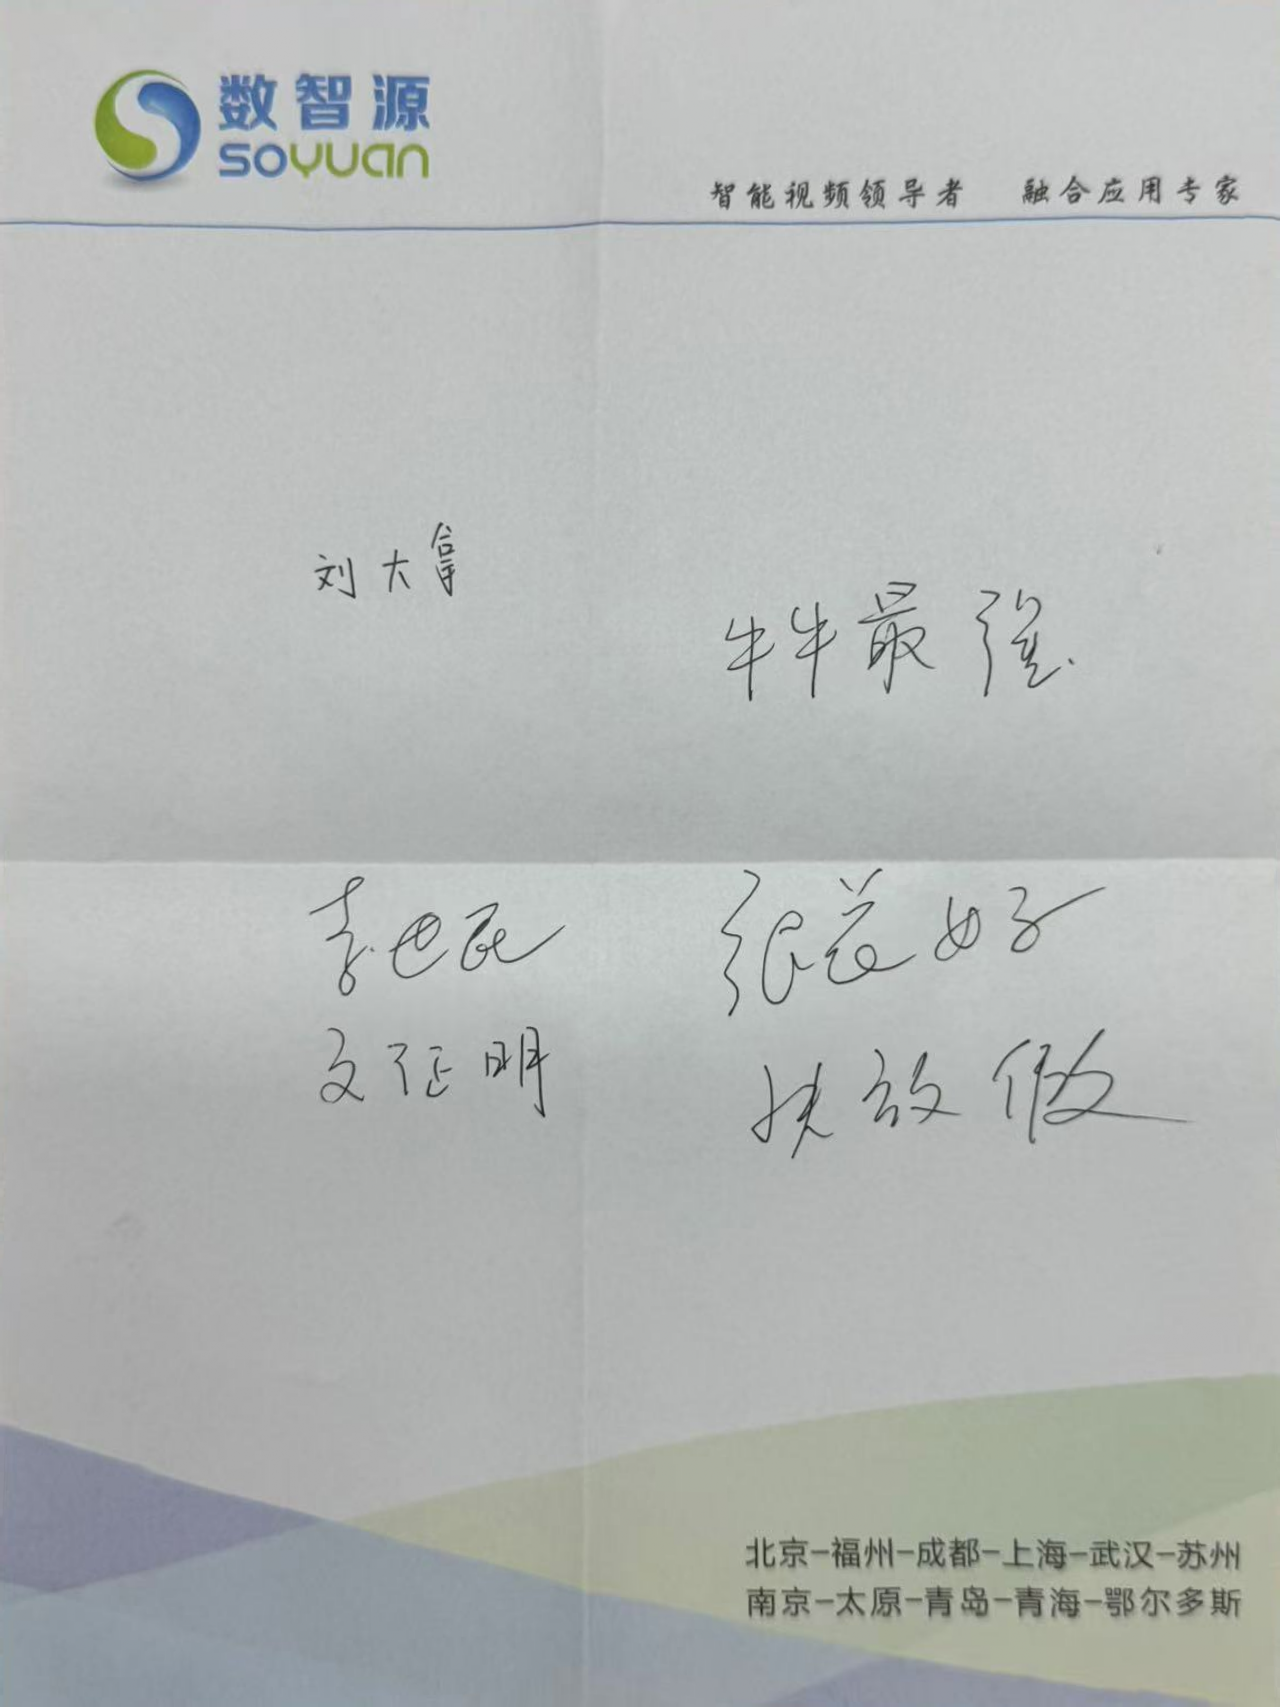 数智源
SOYUAN
智能视频领导者 融合应用专家
刘大拿
牛牛最强.
李世民
张美好
文征明
放假
北京-福州-成都-上海-武汉-苏州
南京-太原-青岛-青海-鄂尔多斯